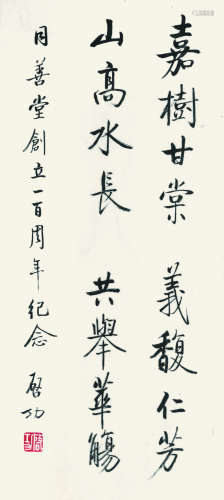 嘉樹甘棠　義馥仁芳
山高水長　共舉華觴
同善堂創立一百周年紀念　啓功